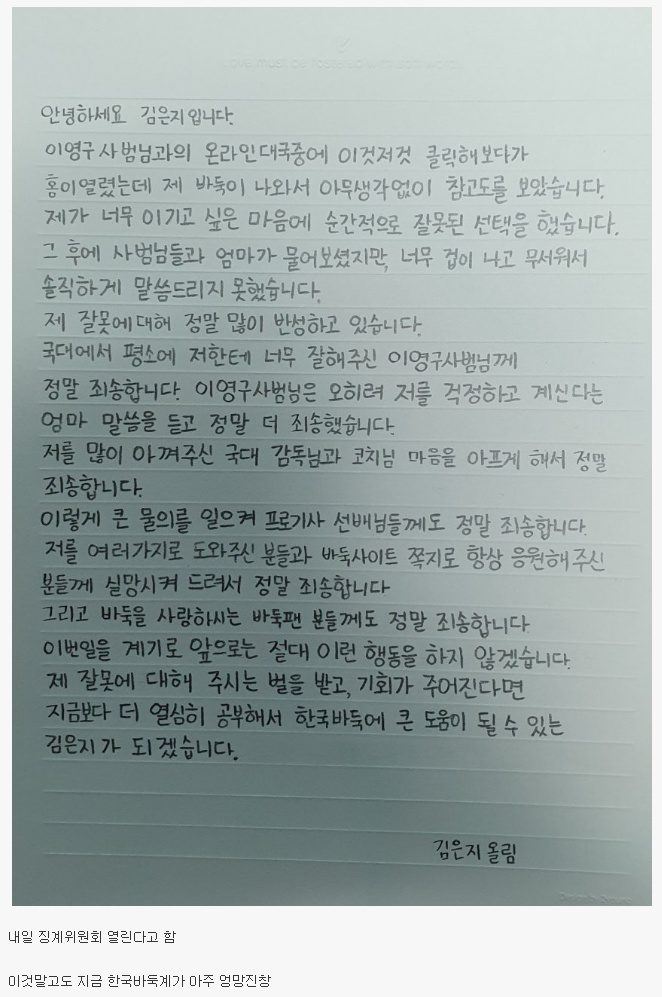 안녕하세요 김은지입니다.
이영구 사범님과의 온라인대국중에 이것저것 클릭해보다가
홍이열렸는데 제 바둑이 나와서 아무생각없이 참고도를 보았습니다.
제가 너무 이기고 싶은 마음에 순간적으로 잘못된 선택을 했습니다.
그 후에 사범님들과 엄마가 물어보셨지만, 너무 겁이 나고 무서워서
솔직하게 말씀드리지 못했습니다.
제 잘못에대해 정말 많이 반성하고 있습니다.
국대에서 평소에 저한테 너무 잘해주신 이영구사범님께
정말 죄송합니다. 이영구사범님은 오히려 저를 걱정하고 계신다는
엄마 말씀을 듣고 정말 더 죄송했습니다.
저를 많이 아껴주신 국대 감독님과 코치님 마음을 아프게 해서 정말
죄송합니다.
이렇게 큰 물의를 일으켜 프로기사 선배님들께도 정말 죄송합니다.
저를 여러가지로 도와주신 분들과 바둑사이트 쪽지로 항상 응원해주신
분들께 실망시켜 드려서 정말 죄송합니다
그리고 바둑을 사랑하시는 바둑팬 분들께도 정말 죄송합니다.
이번일을 계기로 앞으로는 절대 이런 행동을 하지 않겠습니다.
제 잘못에 대해 주시는 벌을 받고, 기회가 주어진다면
지금보다 더 열심히 공부해서 한국바둑에 큰 도움이 될 수 있는
김은지가 되겠습니다.
김은지 올림
내일 징계위원회 열린다고 함
이것말고도 지금 한국바둑계가 아주 엉망진창